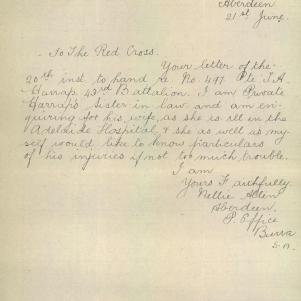 Aberdeen
21st June.
- To The Red Cross.
Your letter of the
20th inst to hand re No. 497. Pte J.A.
Harrap. 43rd Battalion. I am Private
Harrap's Sister in law and am en-
quiring for his wife, as she is ill in the
Adelaide Hospital, & she as well as my
self would like to know particulars
of his injuries if not too much trouble.
I am
Yours Faithfully.
Nellie
Aberdeen.
P. Office
Burra
S.A.